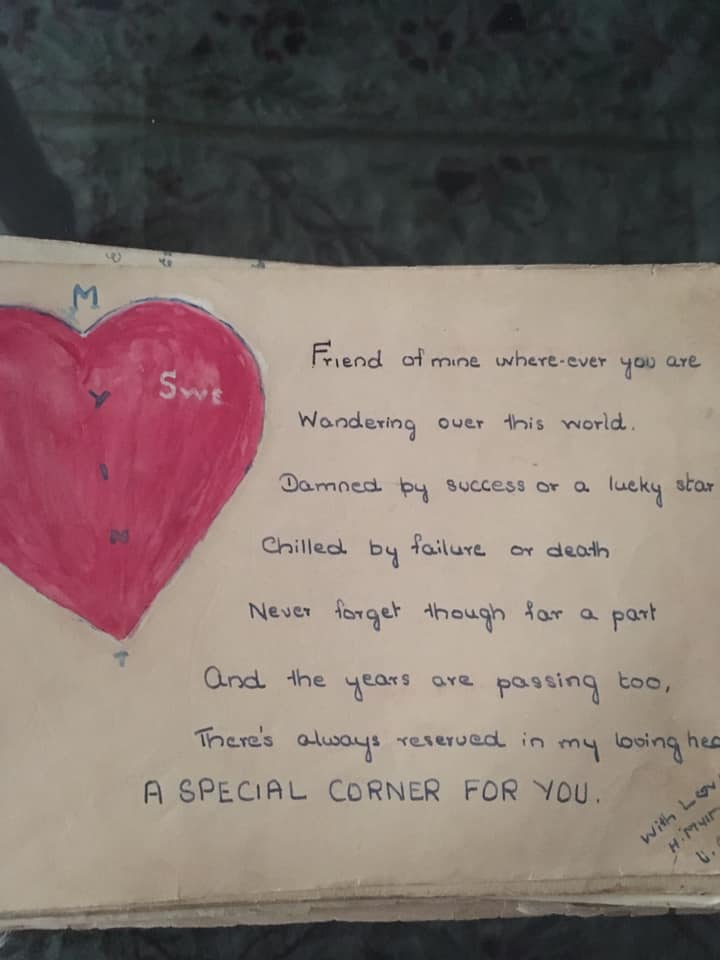 M
Swe
Y
I
N
T
Friend of mine where-ever you are
Wandering over this world.
Damned by success or a lucky star
Chilled by failure or death
Never forget though far a part
And the years are passing too,
There's always reserved in my loving hea
A SPECIAL CORNER FOR YOU.
With Lov